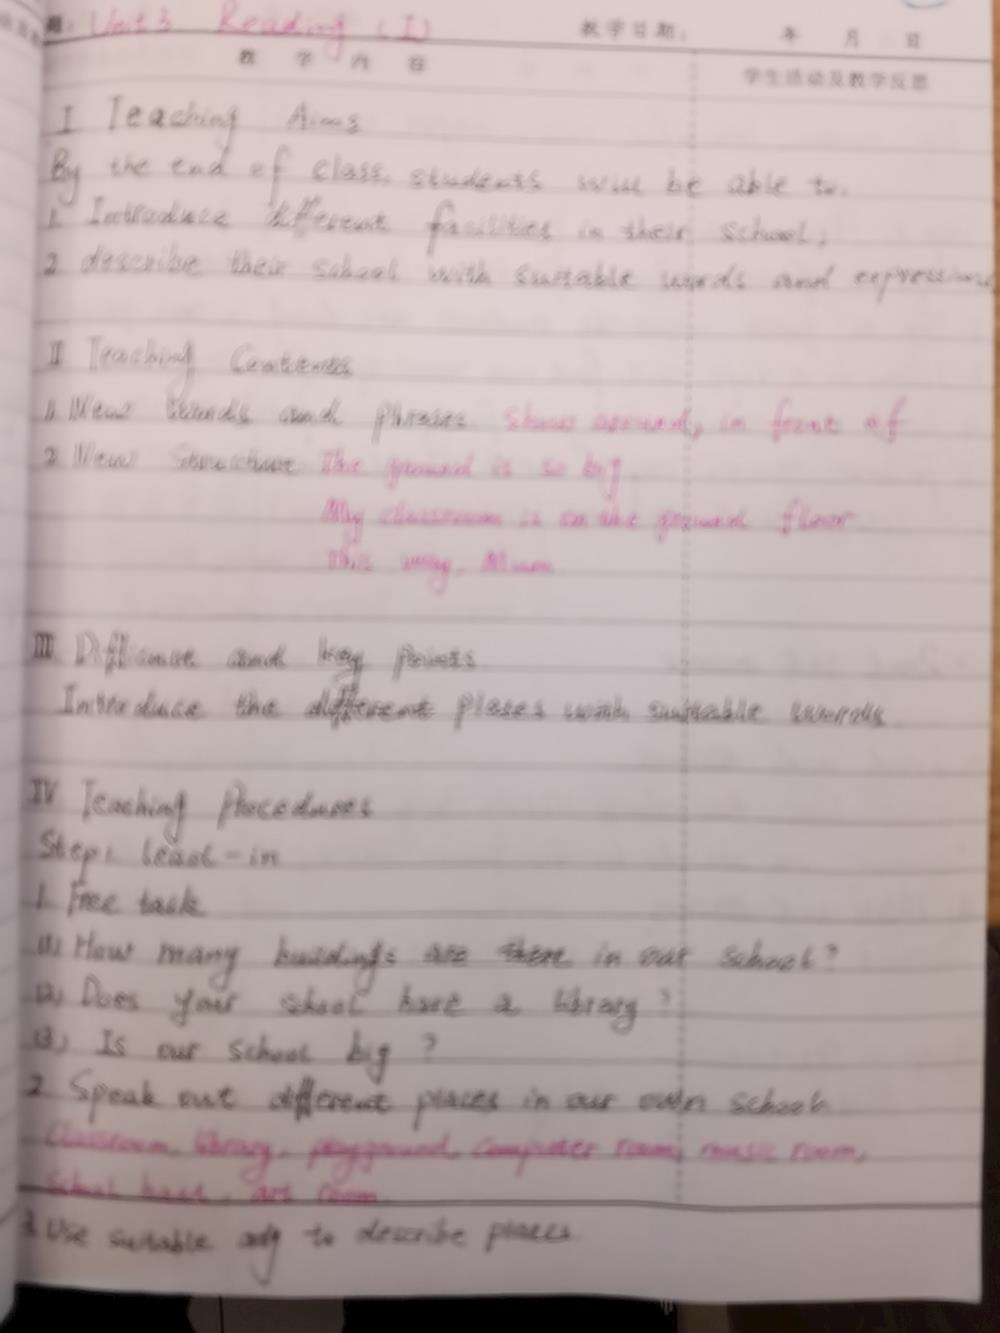 题: Unit 3 Reading (I) 教学日期: 年 月 日
教 学 内 容 学生活动及教学反思
I Teaching Aims
By the end of class, students will be able to.
1. Introduce different facilities in their school;
2 describe their school with suitable words and expressions
II Teaching Contents
1. New words and phrases show around, in front of
2 New Structure The ground is so big
My classroom is on the ground floor
This way, Mum
III Difficult and key points
Introduce the different places with suitable words
IV Teaching Procedures
Step1 Lead-in
1. Free task
(1) How many buildings are there in our school?
(2) Does your school have a library?
(3) Is our school big?
2 Speak out different places in our own school
Classroom, library, playground, computer room, music room,
school art room
3 Use suitable adj to describe places